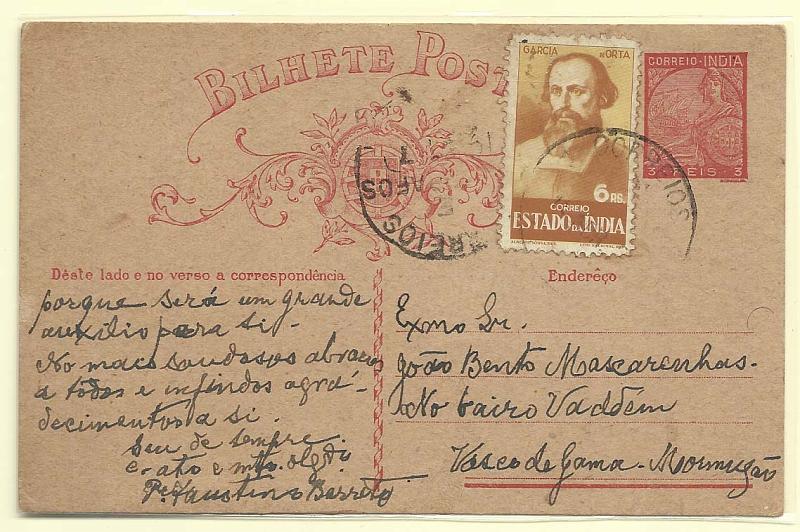 BILHETE POST
GARCIA ORTA
6 RS.
CORREIO
ESTADO DA ÍNDIA
CORREIO·INDIA
3 REIS 3
CORREIOS
Dêste lado e no verso a correspondência
Enderêço
porque será um grande
auxilio para si.
No mais saudosos abraços
a todos e infindos agra-
decimentos a si.
Seu de sempre
e mto. obgdo
Pe. Faustino Barreto
Exmo Sr.
João Bento Mascarenhas.
No bairo Vaddém
Vasco de Gama - Mormugão